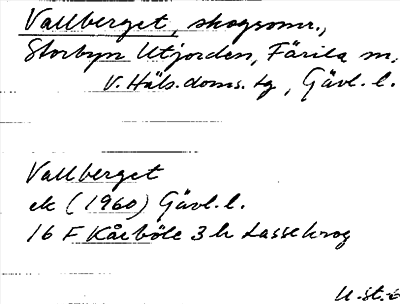 Vallberget, skogsomr.,
Storbyn Utjorden, Färila sn,
V. Häls. doms. tg, Gävl. l.
Vallberget
ek (1960) Gävl. l.
16 F Kårböle 3 h Lassekrog
U. st.